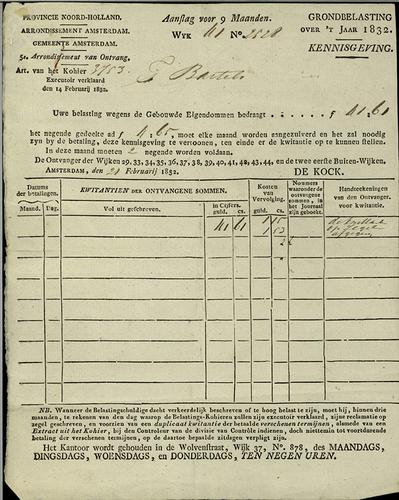 PROVINCIE NOORD-HOLLAND.
ARRONDISSEMENT AMSTERDAM.
GEMEENTE AMSTERDAM.
5e. Arrondissement van Ontvang.
Art. van het Kohier 3753
Executoir verklaard
den 14 Februarij 1832.
Aanslag voor 9 Maanden.
Wyk 41 No. 2528
GRONDBELASTING
OVER 'T JAAR 1832.
KENNISGEVING.
Bartels
Uwe belasting wegens de Gebouwde Eigendommen bedraagt . . . . . . ƒ 41,61
het negende gedeelte ad ƒ 4,65, moet elke maand worden aangezuiverd en het zal noodig
zyn by de betaling, deze kennisgeving te vertoonen, ten einde er de kwitantie op te kunnen stellen.
In deze maand moeten 2 negende worden voldaan.
De Ontvanger der Wijken 29, 33, 34, 35, 36, 37, 38, 39, 40, 41, 42, 43, 44, en de twee eerste Buiten-Wijken.
AMSTERDAM, den 21 Februarij 1832. DE KOCK.
Datums der betalingen.
Maand. Dag.
KWITANTIEN DER ONTVANGENE SOMMEN.
Vol uit geschreven.
in Cijfers.
guld. cs.
Kosten van Vervolging.
guld. cs.
Nummers waaronder de ontvangene sommen, in het Journaal zijn geboekt.
Handteekeningen van den Ontvanger, voor kwitantie.
41 61
NB. Wanneer de Belastingschuldige dacht verkeerdelijk beschreven of te hoog belast te zijn, moet hij, binnen drie
maanden, te rekenen van den dag waarop de Belastings-Kohieren zullen zijn executoir verklaard, zijne reclamatie op
zegel geschreven, en voorzien van een duplicaat kwitantie der betaalde verschenen termijnen, alsmede van een
Extract uit het Kohier, bij den Controleur van de divisie van Contrôle indienen, doch niettemin tot voortdurende
betaling der verschenen termijnen, op de daartoe bepaalde zitdagen verpligt zijn.
Het Kantoor wordt gehouden in de Wolvenstraat, Wijk 37, No. 878, des MAANDAGS,
DINGSDAGS, WOENSDAGS, en DONDERDAGS, TEN NEGEN UREN.